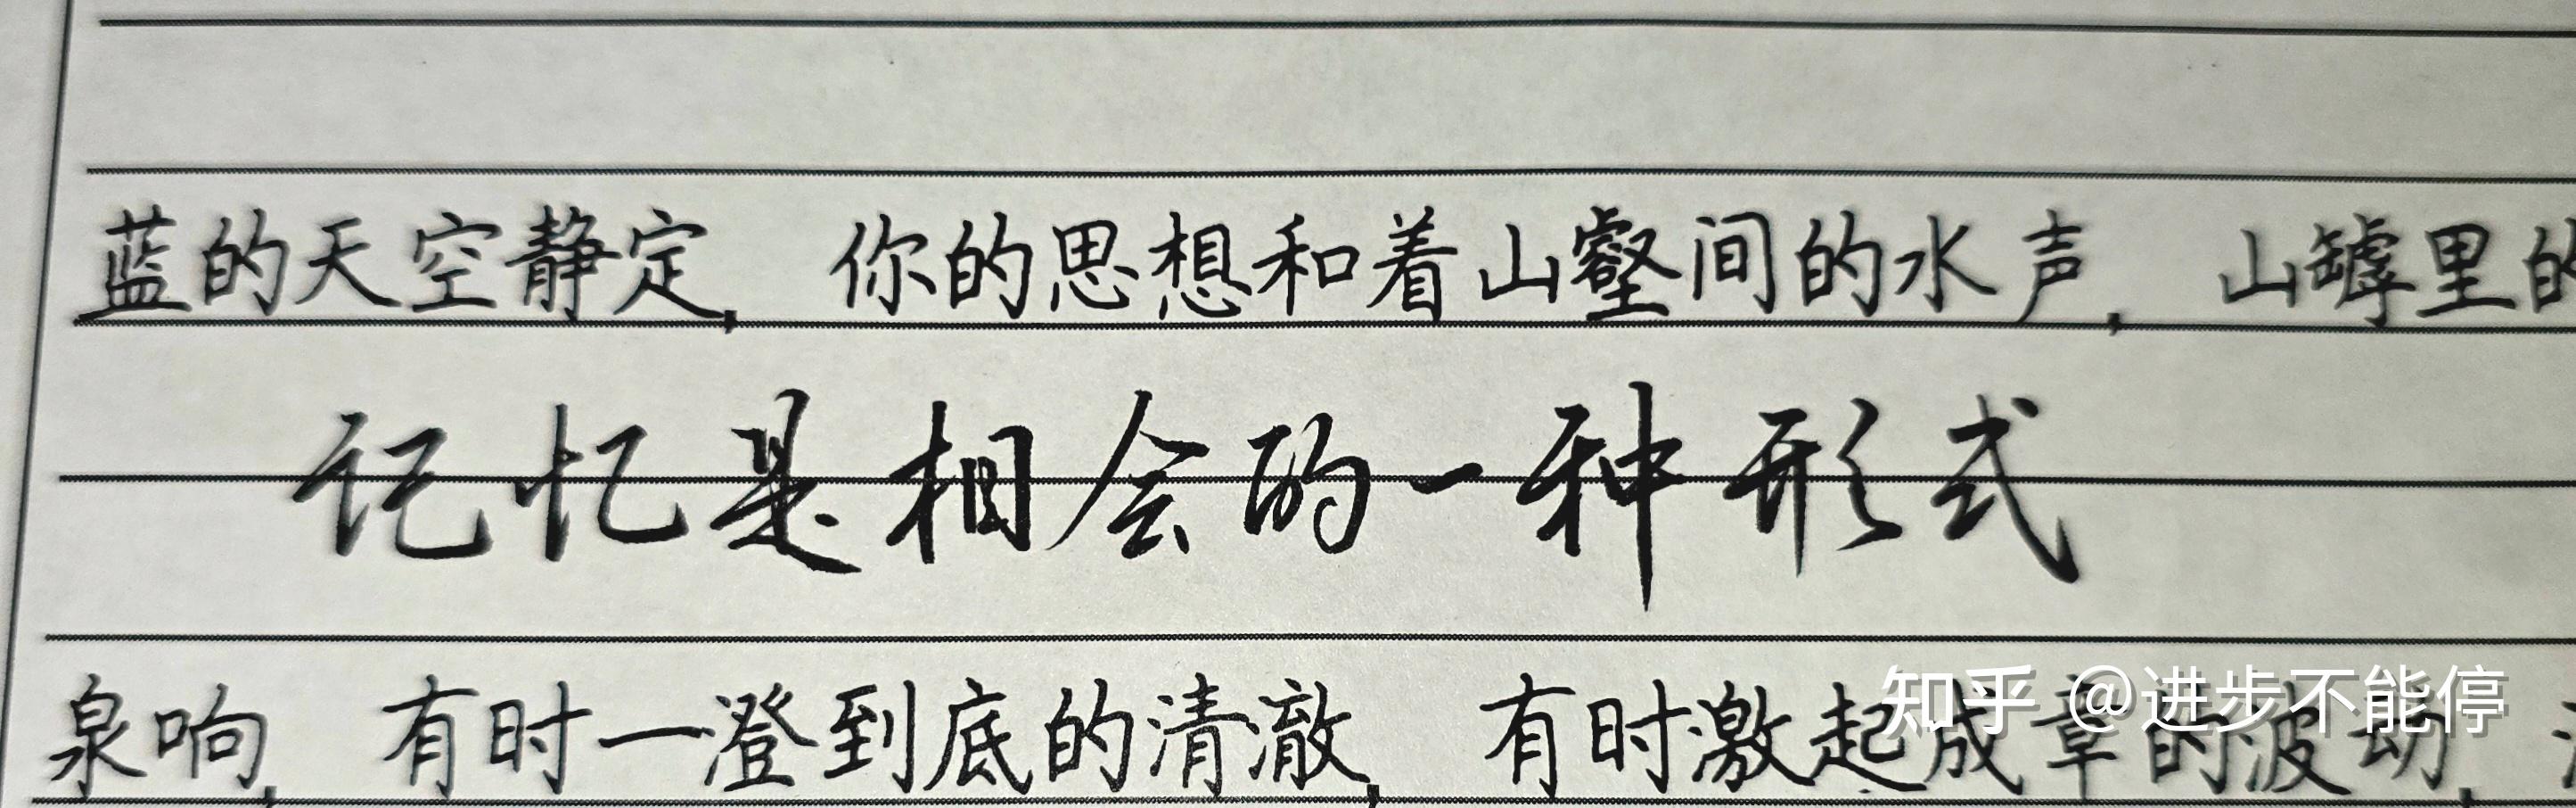 蓝的天空静定，你的思想和着山壑间的水声，山罅里的
记忆是相会的一种形式
泉响，有时一澄到底的清澈，有时激起成章的波动，
知乎 @进步不能停